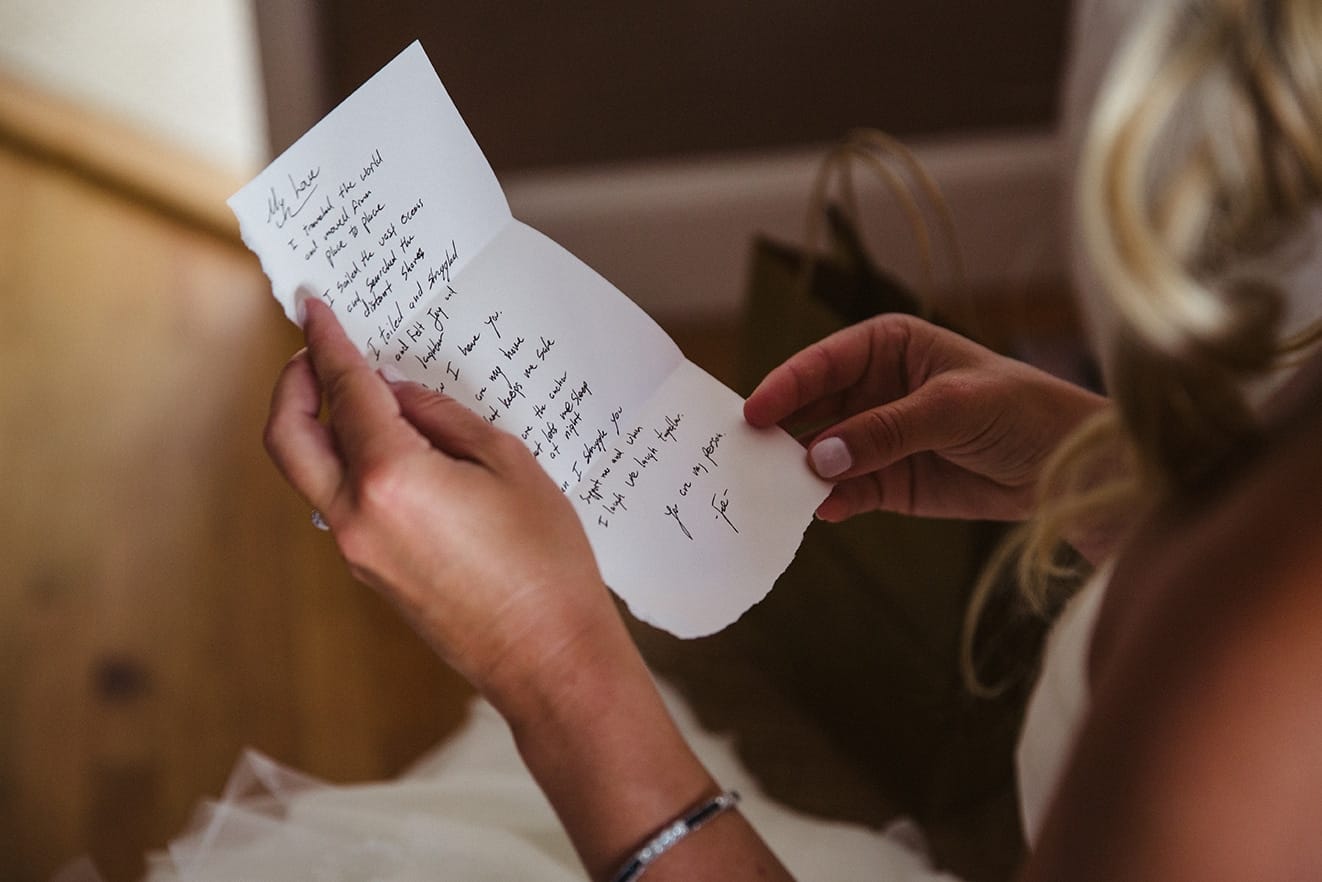 My Love
I traveled the world
and moved from
place to place
I sailed the vast oceans
and searched the
distant shores
I toiled and struggled
and felt Joy and
laughter
I have you.
my home
keeps me safe
are the anchor
lets me sleep
at night
I struggle you
support me and when
I laugh we laugh together.
You are my person